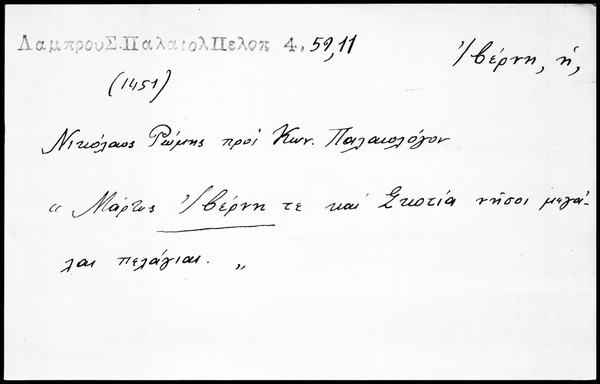 ΛαμπρουΣ.ΠαλαιολΠελοπ 4, 59,11
Ἰβέρνη, ἡ,
(1451)
Νικόλαος Ρώμης πρὸς Κων. Παλαιολόγον
“ Μάρτυς Ἰβέρνη τε καὶ Σκοτία νῆσοι μεγά-
λαι πελάγιαι. „